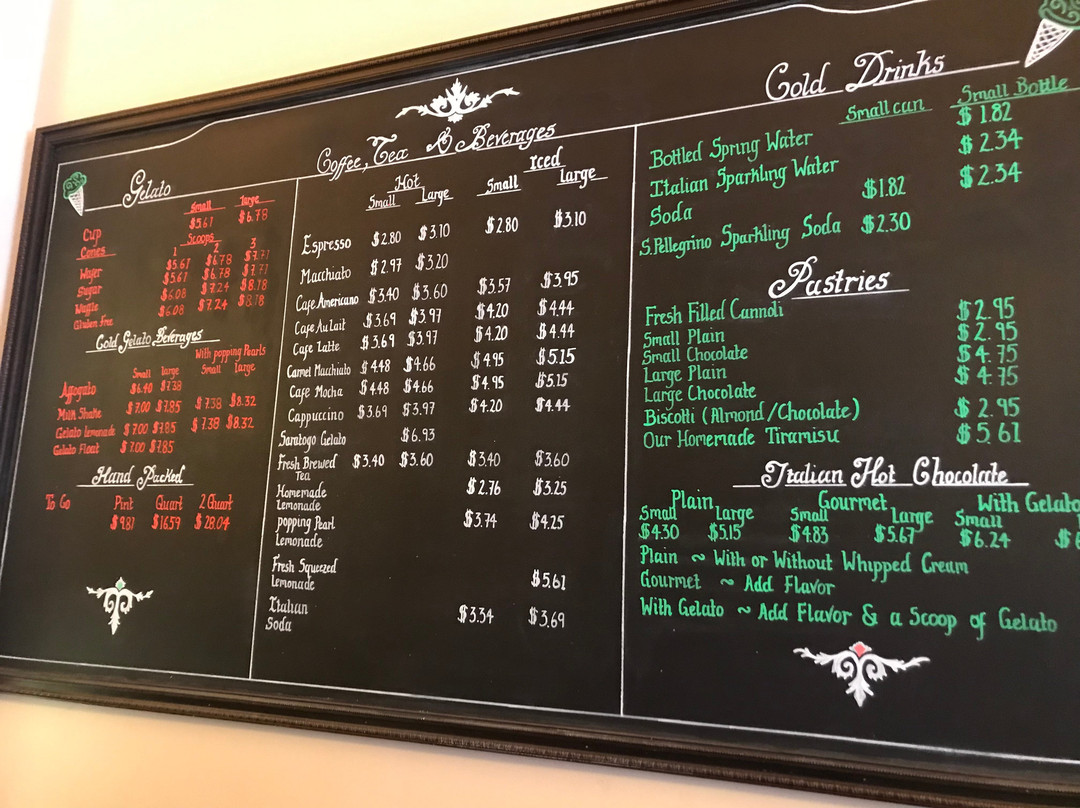 Gelato
Small Large
Cup $5.61 $6.78
Cones Scoops
1 2 3
Wafer $5.61 $6.78 $7.71
Sugar $5.61 $6.78 $7.71
Waffle $6.08 $7.24 $8.18
Gluten Free $6.08 $7.24 $8.18
Cold Gelato Beverages
With popping Pearls
Small Large Small Large
Affogato $6.40 $7.38
Milk Shake $7.00 $7.85 $7.38 $8.32
Gelato lemonade $7.00 $7.85 $7.38 $8.32
Gelato Float $7.00 $7.85
Hand Packed
To Go Pint Quart 2 Quart
$9.81 $16.59 $28.04
Coffee, Tea & Beverages
Hot Iced
Small Large Small Large
Espresso $2.80 $3.10 $2.80 $3.10
Macchiato $2.97 $3.20
Cafe Americano $3.40 $3.60 $3.57 $3.95
Cafe Au Lait $3.69 $3.97 $4.20 $4.44
Cafe Latte $3.69 $3.97 $4.20 $4.44
Carmel Macchiato $4.48 $4.66 $4.95 $5.15
Cafe Mocha $4.48 $4.66 $4.95 $5.15
Cappuccino $3.69 $3.97 $4.20 $4.44
Saratogo Gelato $6.93
Fresh Brewed $3.40 $3.60 $3.40 $3.60
Tea
Homemade $2.76 $3.25
Lemonade
popping Pearl $3.74 $4.25
Lemonade
Fresh Squeezed
Lemonade $5.61
Italian $3.34 $3.69
Soda
Cold Drinks
Small can Small Bottle
Bottled Spring Water $1.82
Italian Sparkling Water $2.34
Soda $1.82 $2.34
S.Pellegrino Sparkling Soda $2.30
Pastries
Fresh Filled Cannoli
Small Plain $2.95
Small Chocolate $2.95
Large Plain $4.75
Large Chocolate $4.75
Biscotti (Almond/Chocolate) $2.95
Our Homemade Tiramisu $5.61
Italian Hot Chocolate
Plain Gourmet With Gelato
Small Large Small Large Small
$4.30 $5.15 $4.83 $5.67 $6.24
Plain ~ With or Without Whipped Cream
Gourmet ~ Add Flavor
With Gelato ~ Add Flavor & a Scoop of Gelato